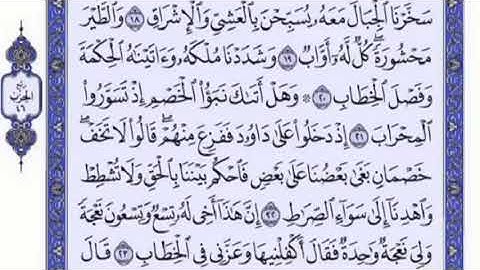 سَخَّرْنَا ٱلْجِبَالَ مَعَهُۥ يُسَبِّحْنَ بِٱلْعَشِىِّ وَٱلْإِشْرَاقِ ١٨ وَٱلطَّيْرَ
مَحْشُورَةً ۖ كُلٌّ لَّهُۥٓ أَوَّابٌ ١٩ وَشَدَدْنَا مُلْكَهُۥ وَءَاتَيْنَٰهُ ٱلْحِكْمَةَ
وَفَصْلَ ٱلْخِطَابِ ٢٠ ۞ وَهَلْ أَتَىٰكَ نَبَؤُا۟ ٱلْخَصْمِ إِذْ تَسَوَّرُوا۟
ٱلْمِحْرَابَ ٢١ إِذْ دَخَلُوا۟ عَلَىٰ دَاوُۥدَ فَفَزِعَ مِنْهُمْ ۖ قَالُوا۟ لَا تَخَفْ ۖ
خَصْمَانِ بَغَىٰ بَعْضُنَا عَلَىٰ بَعْضٍ فَٱحْكُم بَيْنَنَا بِٱلْحَقِّ وَلَا تُشْطِطْ
وَٱهْدِنَآ إِلَىٰ سَوَآءِ ٱلصِّرَٰطِ ٢٢ إِنَّ هَٰذَآ أَخِى لَهُۥ تِسْعٌ وَتِسْعُونَ نَعْجَةً
وَلِىَ نَعْجَةٌ وَٰحِدَةٌ فَقَالَ أَكْفِلْنِيهَا وَعَزَّنِى فِى ٱلْخِطَابِ ٢٣ قَالَ